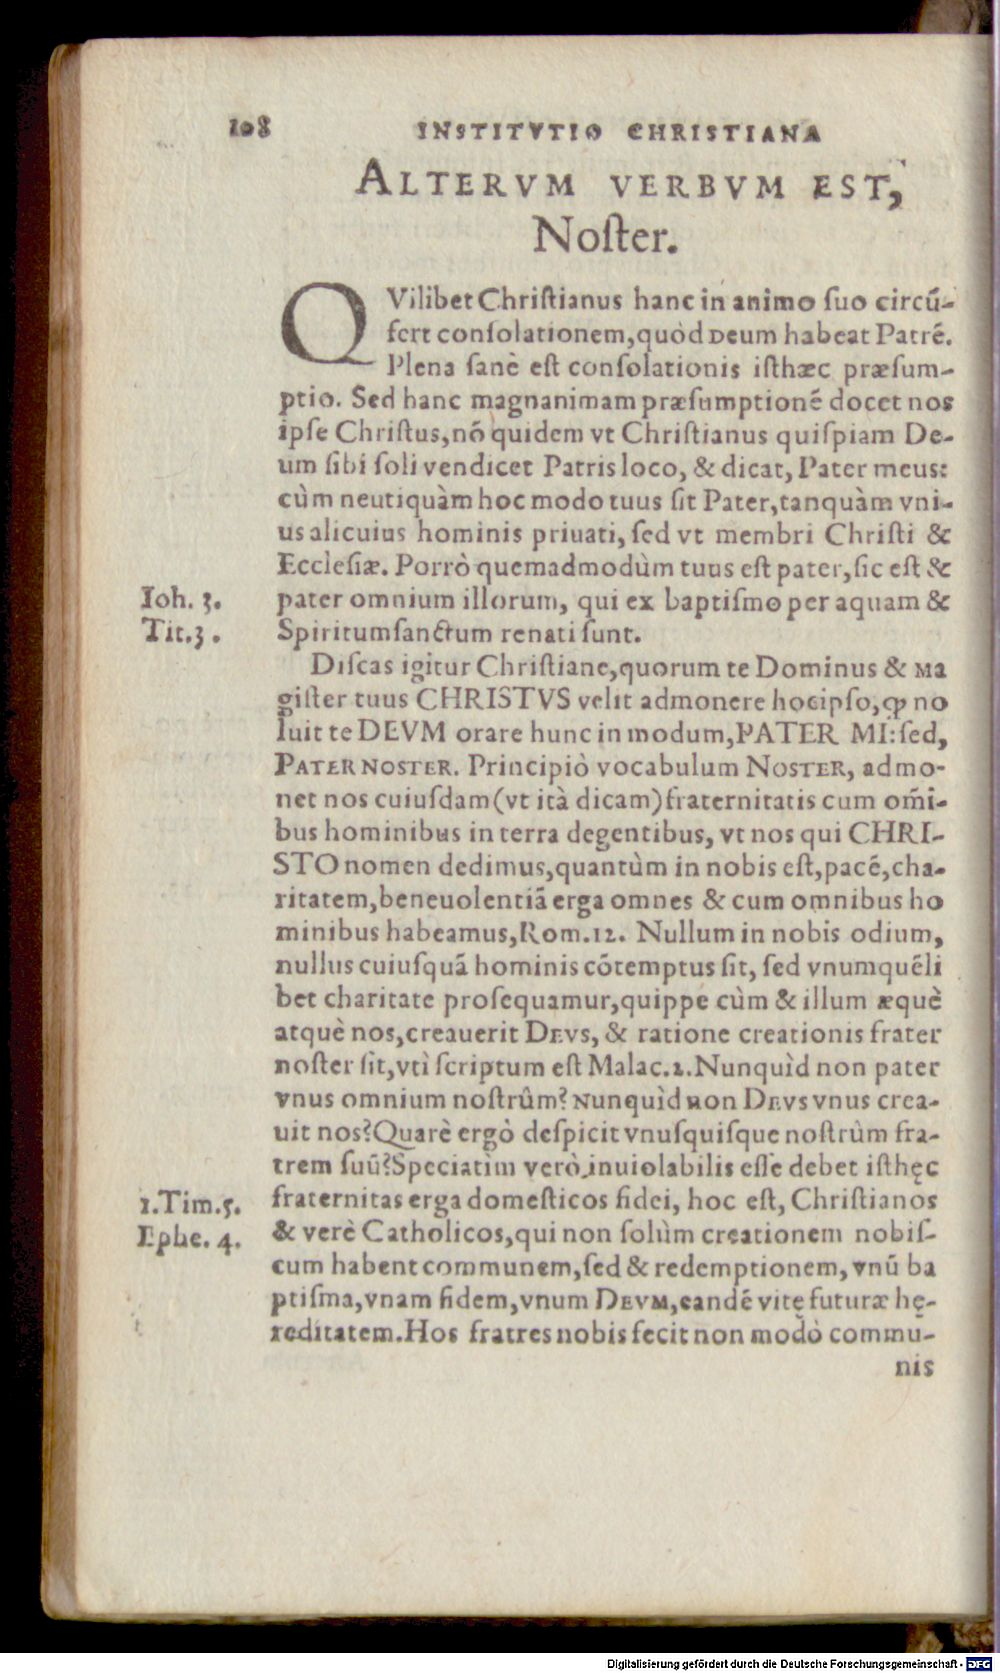 108 INSTITVTIO CHRISTIANA
ALTERVM VERBVM EST,
Noſter.
QVilibet Chriſtianus hanc in animo ſuo circū-
fert conſolationem, quòd DEUM habeat Patrē.
Plena ſanè eſt conſolationis iſthæc præſum-
ptio. Sed hanc magnanimam præſumptionē docet nos
ipſe Chriſtus, nō quidem vt Chriſtianus quiſpiam De-
um ſibi ſoli vendicet Patris loco, & dicat, Pater meus:
cùm neutiquàm hoc modo tuus ſit Pater, tanquàm vni-
us alicuius hominis priuati, ſed vt membri Chriſti &
Eccleſiæ. Porrò quemadmodùm tuus eſt pater, ſic eſt &
Ioh. 3. pater omnium illorum, qui ex baptiſmo per aquam &
Tit.3. Spiritumſanctum renati ſunt.
Diſcas igitur Chriſtiane, quorum te Dominus & MA
giſter tuus CHRISTVS velit admonere hocipſo, ꝙ no
luit te DEVM orare hunc in modum, PATER MI: ſed,
PATER NOSTER. Principiò vocabulum NOSTER, admo-
net nos cuiuſdam (vt ità dicam) fraternitatis cum om̄i-
bus hominibus in terra degentibus, vt nos qui CHRI-
STO nomen dedimus, quantùm in nobis eſt, pacē, cha-
ritatem, beneuolentiā erga omnes & cum omnibus ho
minibus habeamus, Rom.12. Nullum in nobis odium,
nullus cuiuſquā hominis cōtemptus ſit, ſed vnumquēli
bet charitate proſequamur, quippe cùm & illum æquè
atquè nos, creauerit DEVS, & ratione creationis frater
noſter ſit, vtì ſcriptum eſt Malac.2. Nunquìd non pater
vnus omnium noſtrûm? Nunquìd non DEVS vnus crea-
uit nos? Quarè ergò deſpicit vnuſquiſque noſtrùm fra-
trem ſuū? Speciatìm verò inuiolabilis eſſe debet iſthęc
1.Tim.5. fraternitas erga domeſticos fidei, hoc eſt, Chriſtianos
Ephe. 4. & verè Catholicos, qui non ſolùm creationem nobiſ-
cum habent communem, ſed & redemptionem, vnū ba
ptiſma, vnam fidem, vnum DEVM, eandē vitę futuræ hę-
reditatem. Hos fratres nobis fecit non modò commu-
nis
Digitalisierung gefördert durch die Deutsche Forschungsgemeinschaft - DFG